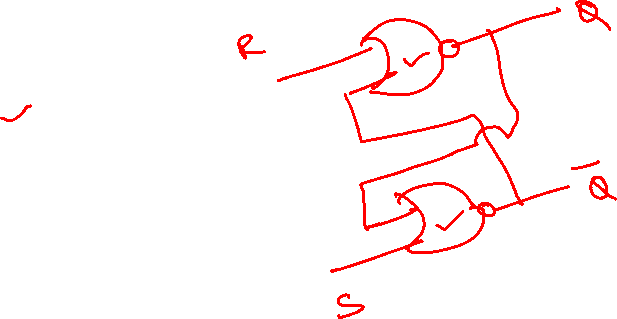 R
Q
Q̅
S